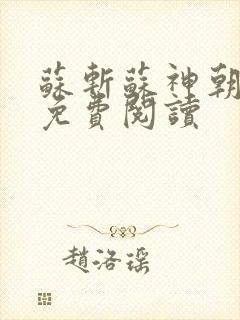 蘇斬蘇神朝
免費閱讀
趙洛瑤